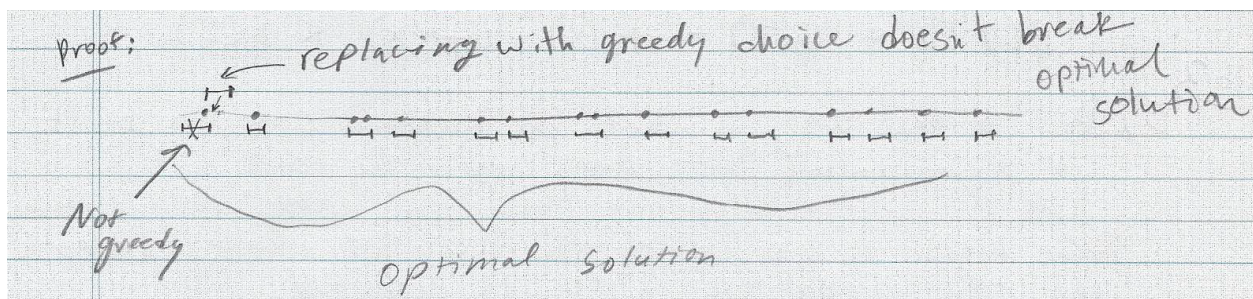 Proof:
replacing with greedy choice doesn't break
optimal
solution
Not
greedy
optimal solution